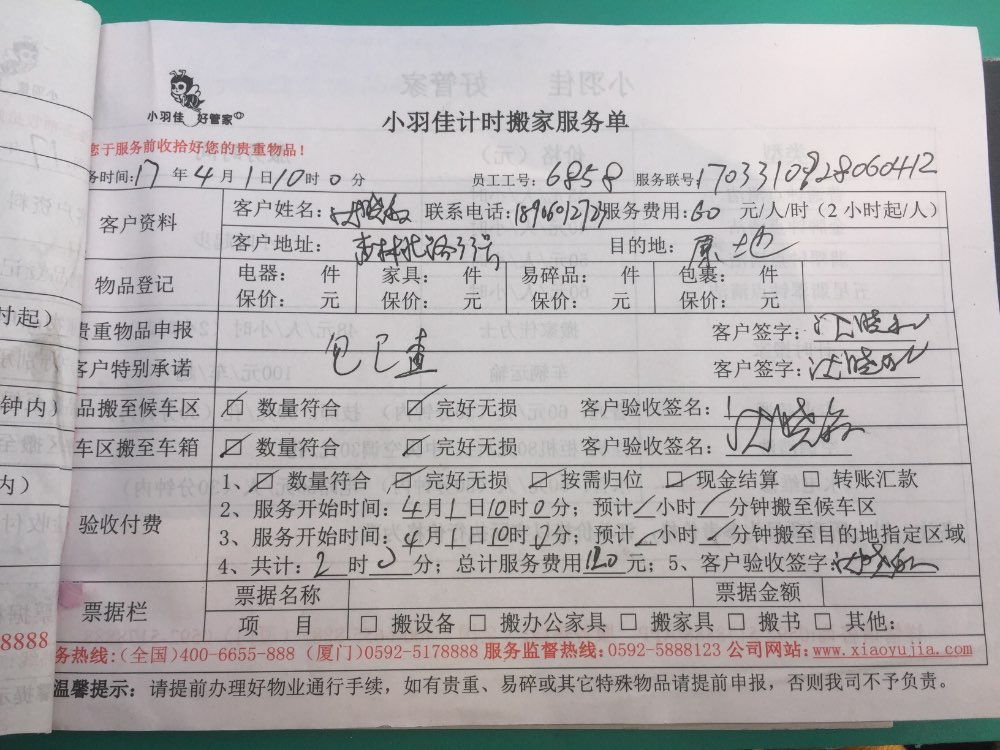 小羽佳 好管家
小羽佳计时搬家服务单
您于服务前收拾好您的贵重物品！
务时间：17年4月1日10时0分 员工工号：6858 服务联号：
客户资料
客户姓名： 联系电话： 服务费用：60 元/人/时（2小时起/人）
客户地址： 森林北路33号 目的地：原地
物品登记
电器： 件 家具： 件 易碎品： 件 包裹： 件
保价： 元 保价： 元 保价： 元 保价： 元
贵重物品申报 客户签字：
包已查
客户特别承诺 客户签字：
品搬至候车区 ☑ 数量符合 ☑ 完好无损 客户验收签名：
车区搬至车箱 ☑ 数量符合 ☑ 完好无损 客户验收签名：
验收付费
1、☑ 数量符合 ☑ 完好无损 ☑ 按需归位 ☑ 现金结算 □ 转账汇款
2、服务开始时间：4月1日10时0分；预计/小时/分钟搬至候车区
3、服务开始时间：4月1日10时0分；预计/小时/分钟搬至目的地指定区域
4、共计：2时0分；总计服务费用120元；5、客户验收签字：
票据栏
票据名称 票据金额
项 目 □ 搬设备 □ 搬办公家具 □ 搬家具 □ 搬书 □ 其他：
务热线：（全国）400-6655-888（厦门）0592-5178888 服务监督热线：0592-5888123 公司网站：www.xiaoyujia.com
温馨提示：请提前办理好物业通行手续，如有贵重、易碎或其它特殊物品请提前申报，否则我司不予负责。
时起）
钟内）
内）
8888